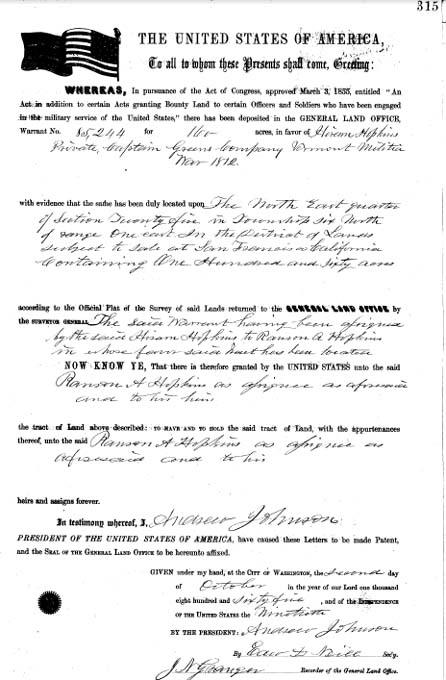 315
THE UNITED STATES OF AMERICA,
To all to whom these Presents shall come, Greeting:
WHEREAS, In pursuance of the Act of Congress, approved March 3, 1855, entitled "An
Act in addition to certain Acts granting Bounty Land to certain Officers and Soldiers who have been engaged
in the military service of the United States," there has been deposited in the GENERAL LAND OFFICE,
Warrant No. 85,244 for 160 acres, in favor of Hiram Hopkins
Private, Captain Greens Company Vermont Militia
War 1812
with evidence that the same has been duly located upon The North East quarter
of Section Twenty five in Township Six North
of range One east In the District of Lands
subject to sale at San Francisco California
Containing One Hundred and Sixty acres
according to the Official Plat of the Survey of said Lands returned to the GENERAL LAND OFFICE by
the SURVEYOR GENERAL The said Warrant having been assigned
by the said Hiram Hopkins to Ranson A Hopkins
in whose favor said tract has been located
NOW KNOW YE, That there is therefore granted by the UNITED STATES unto the said
Ranson A Hopkins as assignee as aforesaid
and to his
the tract of Land above described: TO HAVE AND TO HOLD the said tract of Land, with the appurtenances
thereof, unto the said Ranson A Hopkins as assignee as
aforesaid and to his
heirs and assigns forever.
In testimony whereof, I, Andrew Johnson
PRESIDENT OF THE UNITED STATES OF AMERICA, have caused these Letters to be made Patent,
and the SEAL OF THE GENERAL LAND OFFICE to be hereunto affixed.
GIVEN under my hand, at the CITY OF WASHINGTON, the Second day
of October in the year of our Lord one thousand
eight hundred and Sixty five, and of the INDEPENDENCE
OF THE UNITED STATES the Ninetieth
BY THE PRESIDENT: Andrew Johnson
By Edw D Neill Sec'y.
J N Granger Recorder of the General Land Office.